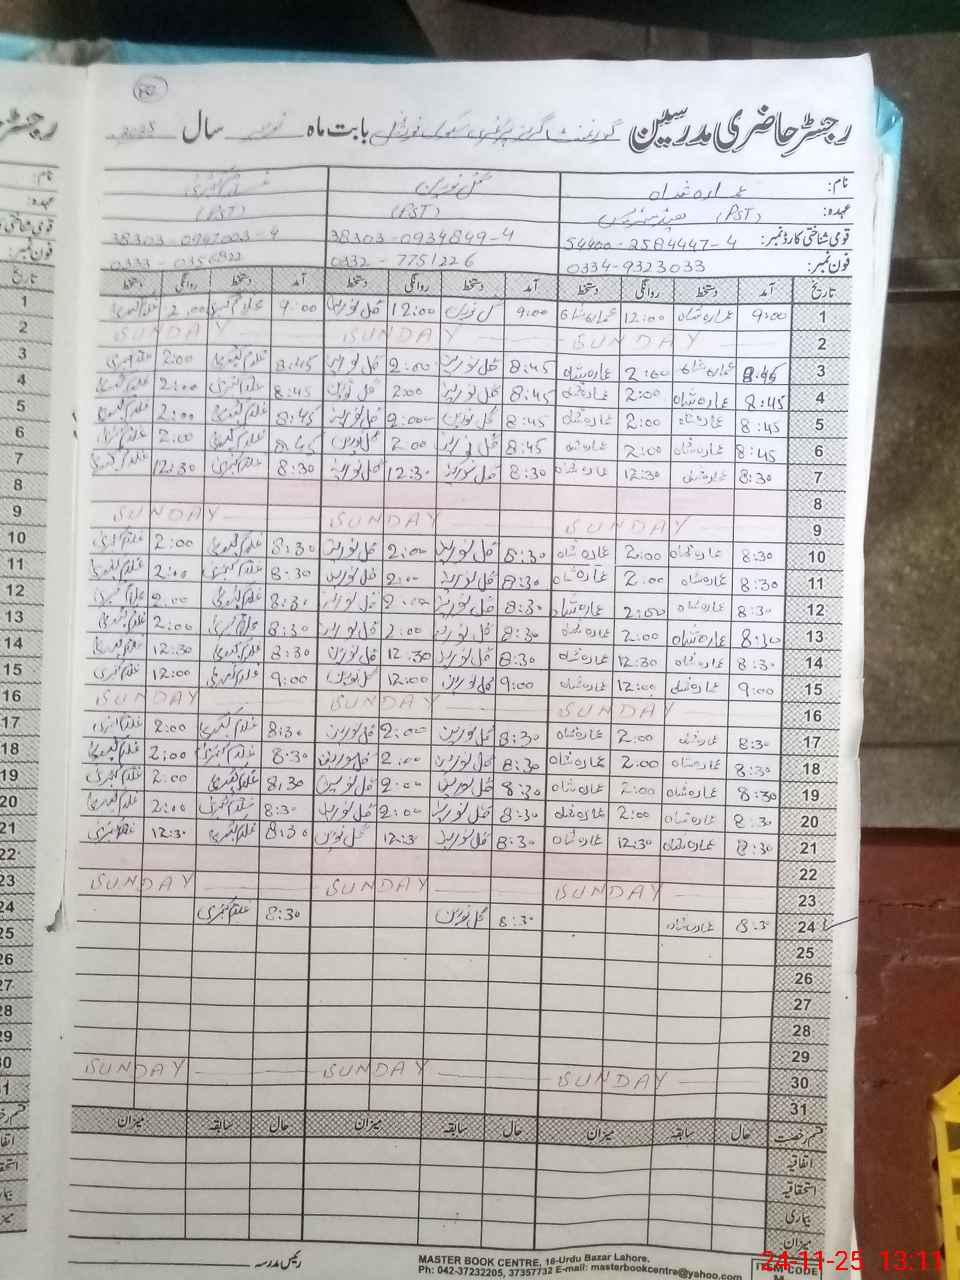 رجسٹر حاضری مدرسین گورنمنٹ گرلز پرائمری سکول بابت ماہ نومبر سال 2025
نام: عمارہ شاہ گل نورین
عہدہ: ہیڈ مسٹریس (PST) (PST) (PST)
قومی شناختی کارڈ نمبر: 54400-2584447-4 38303-0934849-4 38303-0947003-4
فون نمبر: 0334-9323033 0332-7751226 0333-0356822
تاریخ آمد دستخط روانگی دستخط آمد دستخط روانگی دستخط آمد دستخط روانگی دستخط
1 9:00 عمارہ شاہ 12:00 عمارہ شاہ 9:00 گل نورین 12:00 گل نورین 9:00 2:00
2 SUNDAY SUNDAY SUNDAY
3 8:45 عمارہ شاہ 2:00 عمارہ شاہ 8:45 گل نورین 2:00 گل نورین 8:45 2:00
4 8:45 عمارہ شاہ 2:00 عمارہ شاہ 8:45 گل نورین 2:00 گل نورین 8:45 2:00
5 8:45 عمارہ شاہ 2:00 عمارہ شاہ 8:45 گل نورین 2:00 گل نورین 8:45 2:00
6 8:45 عمارہ شاہ 2:00 عمارہ شاہ 8:45 گل نورین 2:00 گل نورین 8:45 2:00
7 8:30 عمارہ شاہ 12:30 عمارہ شاہ 8:30 گل نورین 12:30 گل نورین 8:30 12:30
8
9 SUNDAY SUNDAY SUNDAY
10 8:30 عمارہ شاہ 2:00 عمارہ شاہ 8:30 گل نورین 2:00 گل نورین 8:30 2:00
11 8:30 عمارہ شاہ 2:00 عمارہ شاہ 8:30 گل نورین 2:00 گل نورین 8:30 2:00
12 8:30 عمارہ شاہ 2:00 عمارہ شاہ 8:30 گل نورین 2:00 گل نورین 8:30 2:00
13 8:30 عمارہ شاہ 2:00 عمارہ شاہ 8:30 گل نورین 2:00 گل نورین 8:30 2:00
14 8:30 عمارہ شاہ 12:30 عمارہ شاہ 8:30 گل نورین 12:30 گل نورین 8:30 12:30
15 9:00 عمارہ شاہ 12:00 عمارہ شاہ 9:00 گل نورین 12:00 گل نورین 9:00 12:00
16 SUNDAY SUNDAY SUNDAY
17 8:30 عمارہ شاہ 2:00 عمارہ شاہ 8:30 گل نورین 2:00 گل نورین 8:30 2:00
18 8:30 عمارہ شاہ 2:00 عمارہ شاہ 8:30 گل نورین 2:00 گل نورین 8:30 2:00
19 8:30 عمارہ شاہ 2:00 عمارہ شاہ 8:30 گل نورین 2:00 گل نورین 8:30 2:00
20 8:30 عمارہ شاہ 2:00 عمارہ شاہ 8:30 گل نورین 2:00 گل نورین 8:30 2:00
21 8:30 عمارہ شاہ 12:30 عمارہ شاہ 8:30 گل نورین 12:30 گل نورین 8:30 12:30
22
23 SUNDAY SUNDAY SUNDAY
24 8:30 عمارہ شاہ 8:30 گل نورین 8:30
25
26
27
28
29
30 SUNDAY SUNDAY SUNDAY
31
قسم رخصت حال سابقہ میزان حال سابقہ میزان حال سابقہ میزان
اتفاقیہ
استحقاقیہ
بیماری
میزان
رئیس مدرسہ
MASTER BOOK CENTRE, 16-Urdu Bazar Lahore.
Ph: 042-37232205, 37357732 E-mail: masterbookcentre@yahoo.com
ITEM CODE
24-11-25 13:11